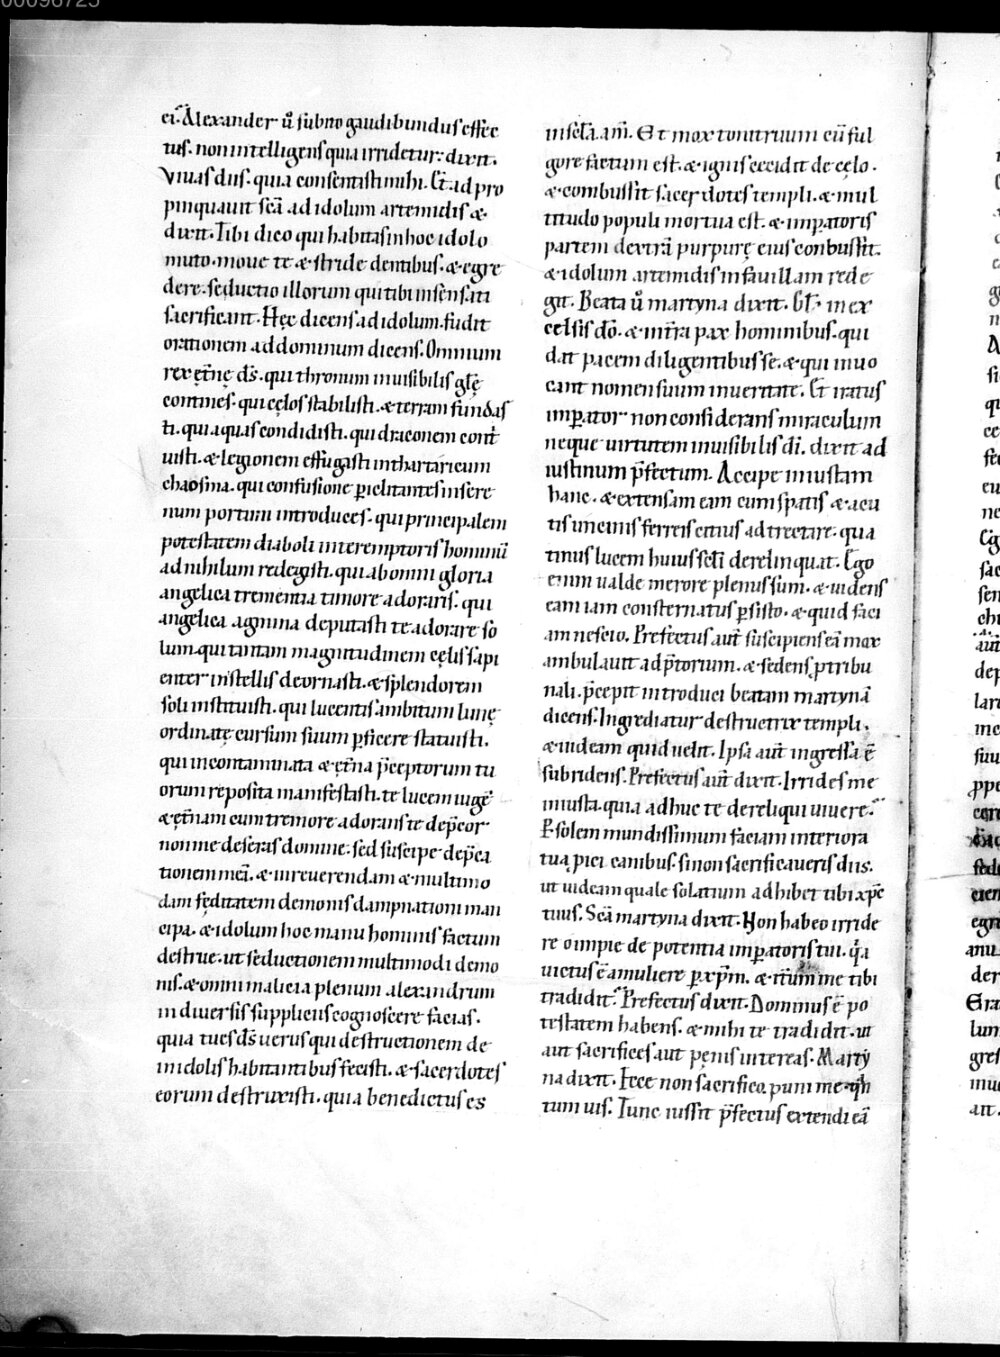 00096725
ei. Alexander ũ subito gaudibundus effec
tus. non intelligens quia irridetur: dixit.
Viuas dñs. quia consentisti mihi. Et ad pro
pinquauit sc̃a ad idolum artemidis &
dixit. Tibi dico qui habitas in hoc idolo
muto. moue te & stride dentibus. & egre
dere. seductio illorum qui tibi insensati
sacrificant. Hęc dicens ad idolum. fudit
orationem ad dominum dicens. Omnium
rex et̃nę d̃s. qui thronum inuisibilis gl̃ę
contines. qui cęlos stabilisti. & terram fundas
ti. qui aquas condidisti. qui draconem cont̃
uisti. & legionem effugasti in thartaricum
chaosma. qui confusione p̱iclitantes in sere
num portum introduces. qui principalem
potestatem diaboli interemptoris hominũ
ad nihilum redegisti. qui ab omni gloria
angelica trementia timore adoraris. qui
angelica agmina deputasti te adorare so
lum. qui tantam magnitudinem cęlis sapi
enter in stellis deornasti. & splendorem
soli instituisti. qui lucentis ambitum lunę
ordinatę cursum suum p̱ficere statuisti.
qui incontaminata & et̃na p̃ceptorum tu
orum reposita manifestasti. te lucem iugẽ
& et̃nam cum tremore adorans te dep̃cor
non me deseras domine. sed suscipe dep̃ca
tionem meã. & irreuerendam & multimo
dam fęditatem demonis dampnationi man
cipa. & idolum hoc manu hominis factum
destrue. ut seductionem multimodi demo
nis. & omni malicia plenum alexandrum
in diuersis suppliciis cognoscere facias.
quia tu es d̃s uerus qui destructionem de
in idolis habitantibus fecisti. & sacerdotes
eorum destruxisti. quia benedictus es
in sc̃la. am̃. Et mox tonitruum cũ ful
gore factum est. & ignis cecidit de cęlo.
& combussit sacerdotes templi. & mul
titudo populi mortua est. & imp̱atoris
partem dextrã purpurę eius conbussit.
& idolum artemidis in fauillam rede
git. Beata ũ martyna dixit. Gl̃. in ex
celsis dõ. & in t̃ra pax hominibus. qui
dat pacem diligentibus se. & qui inuo
cant nomen suum in ueritate. Et iratus
imp̱ator non considerans miraculum
neque uirtutem inuisibilis dĩ. dixit ad
iustinum p̃fectum. Accipe iniustam
hanc. & extensam eam cum spatis & acu
tis uncinis ferreis citius ad trectare. qua
tinus lucem huius sc̃li derelinquat. Ego
enim ualde merore plenus sum. & uidens
eam iam consternatus p̱sisto. & quid faci
am nescio. Prefectus aut̃ suscipiens eã mox
ambulauit ad p̃torium. & sedens p̱ tribu
nali. p̃cepit introduci beatam martynã
dicens. Ingrediatur destructrix templi.
& uideam quid uelit. Ipsa aut̃ ingressa ẽ
subridens. Prefectus aut̃ dixit. Irrides me
iniusta. quia adhuc te dereliqui uiuere?
P̱ solem mundissimum faciam interiora
tua p̱ici canibus. si non sacrificaueris diis.
ut uideam quale solatium adhibet tibi xp̃c
tuus. Sc̃a martyna dixit. Non habeo irride
re o impie de potentia imp̱atoris tui. q̃a
uictus ẽ a muliere p̱ xp̃m. & it̃um me tibi
tradidit. Prefectus dixit. Dominus ẽ po
testatem habens. & mihi te tradidit. ut
aut sacrifices aut pęnis intereas. Marty
na dixit. Ecce non sacrifico. puni me q̃n
tum uis. Tunc iussit p̃fectus extendi eã